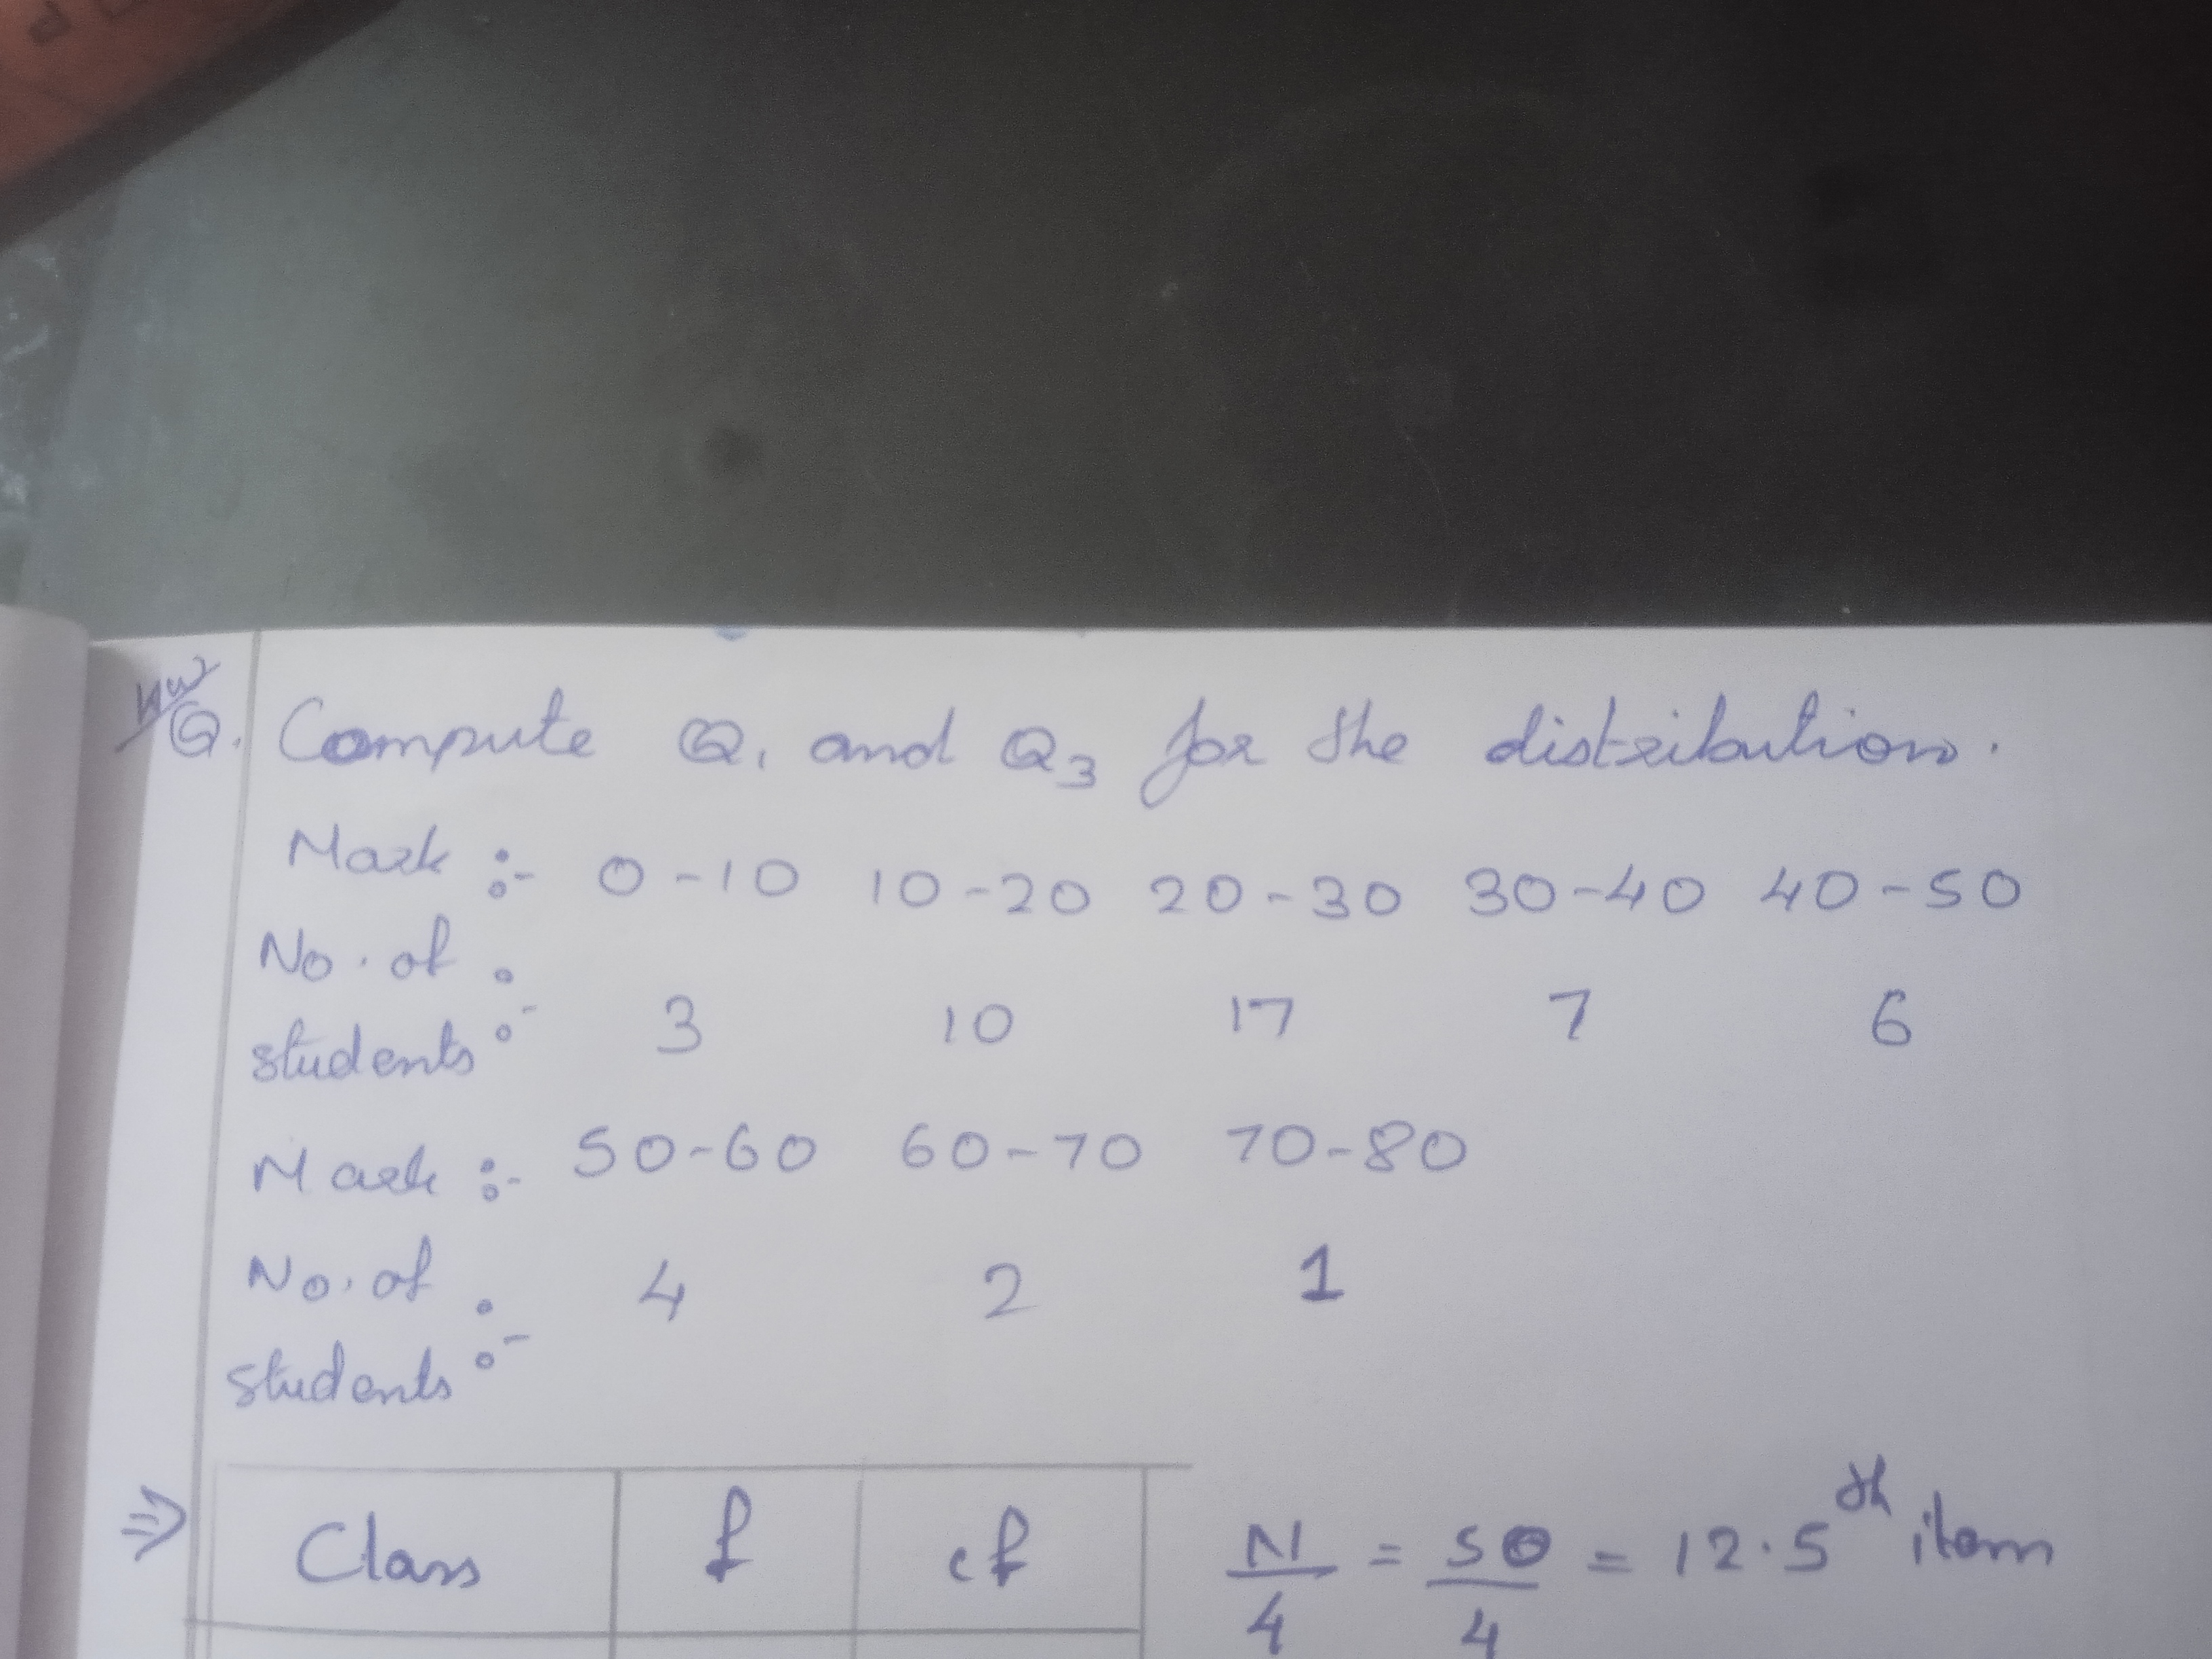 HW
Q. Compute Q1 and Q3 for the distribution.
Mark :- 0-10 10-20 20-30 30-40 40-50
No. of
students :- 3 10 17 7 6
Mark :- 50-60 60-70 70-80
No. of
students :- 4 2 1
⇒ Class f cf N/4 = 50/4 = 12.5th item